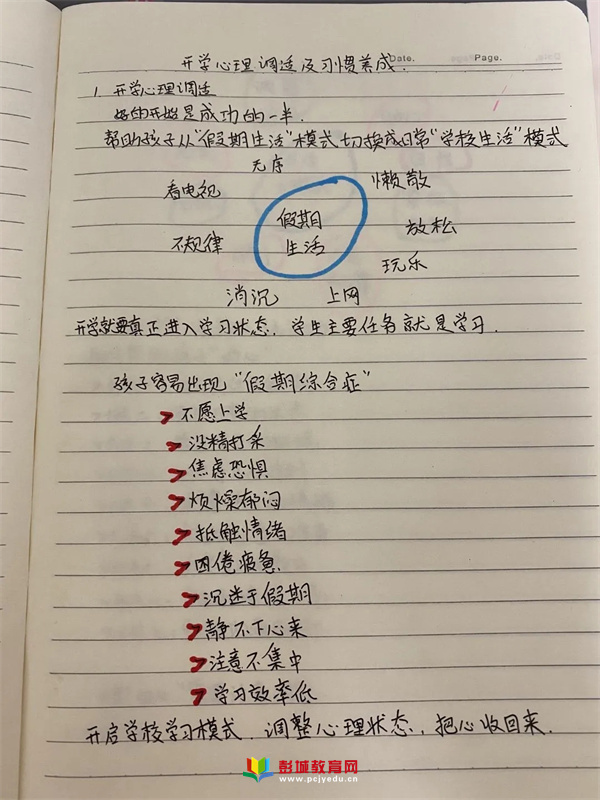 Date.
Page.
开学心理调适及习惯养成.
1. 开学心理调适
好的开始是成功的一半.
帮助孩子从“假期生活”模式切换成日常“学校生活”模式
无序
看电视
懒散
假期
生活
不规律
放松
玩乐
消沉
上网
开学就要真正进入学习状态，学生主要任务就是学习.
孩子容易出现“假期综合症”
不愿上学
没精打采
焦虑恐惧
烦燥郁闷
抵触情绪
困倦疲惫
沉迷于假期
静不下心来
注意不集中
学习效率低
开启学校学习模式. 调整心理状态，把心收回来.
彭城教育网
www.pcjyedu.cn